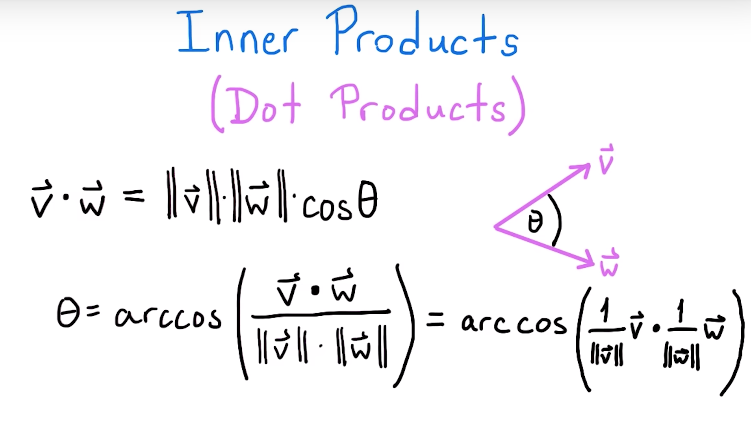 Inner Products
(Dot Products)
v⃗ · w⃗ = ‖v⃗‖·‖w⃗‖·cosθ
v⃗
θ
w⃗
θ = arccos( (v⃗ · w⃗) / (‖v⃗‖ · ‖w⃗‖) ) = arccos( 1/‖v⃗‖ v⃗ · 1/‖w⃗‖ w⃗ )